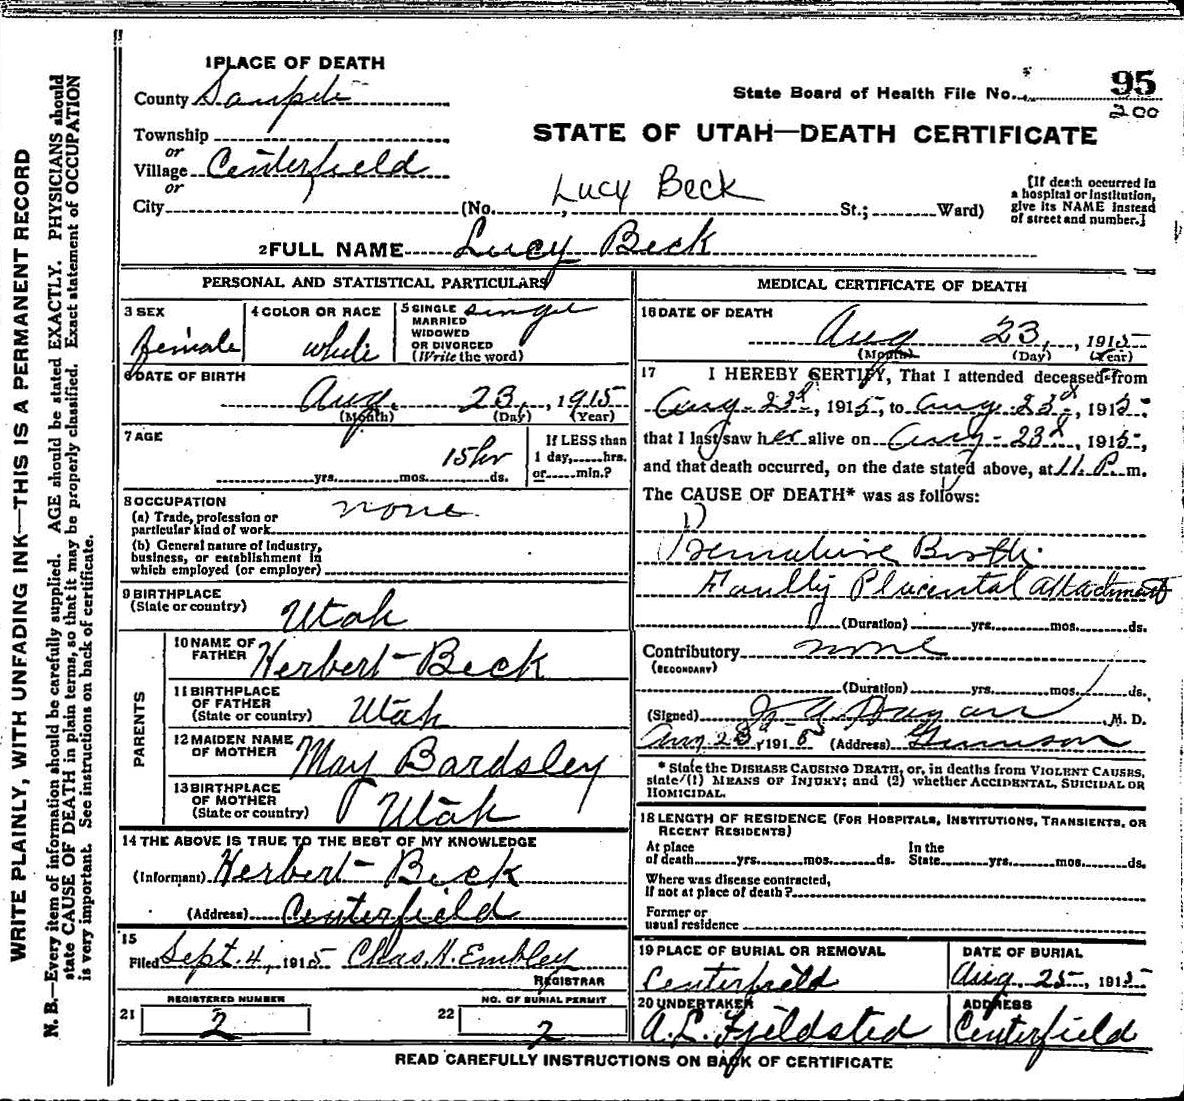 1 PLACE OF DEATH
County Sanpete
State Board of Health File No. 95
200
STATE OF UTAH—DEATH CERTIFICATE
Township
or
Village Centerfield
or
City (No. , Lucy Beck St.; Ward)
[If death occurred in
a hospital or institution,
give its NAME instead
of street and number.]
2 FULL NAME Lucy Beck
PERSONAL AND STATISTICAL PARTICULARS
3 SEX
female
4 COLOR OR RACE
white
5 SINGLE single
MARRIED
WIDOWED
OR DIVORCED
(Write the word)
6 DATE OF BIRTH
Aug. 23, , 1915
(Month) (Day) (Year)
7 AGE
15 hr
yrs. mos. ds.
If LESS than
1 day, hrs.
or min.?
8 OCCUPATION none
(a) Trade, profession or
particular kind of work
(b) General nature of industry,
business, or establishment in
which employed (or employer)
9 BIRTHPLACE
(State or country) Utah
PARENTS
10 NAME OF
FATHER Herbert Beck
11 BIRTHPLACE
OF FATHER
(State or country) Utah
12 MAIDEN NAME
OF MOTHER May Bardsley
13 BIRTHPLACE
OF MOTHER
(State or country) Utah
14 THE ABOVE IS TRUE TO THE BEST OF MY KNOWLEDGE
(Informant) Herbert Beck
(Address) Centerfield
15
Filed Sept. 4, 1915 Chas. H. Embley
REGISTRAR
REGISTERED NUMBER
21 2
NO. OF BURIAL PERMIT
22 2
MEDICAL CERTIFICATE OF DEATH
16 DATE OF DEATH
Aug 23, , 1915
(Month) (Day) (Year)
17 I HEREBY CERTIFY, That I attended deceased from
Aug - 23d, 1915, to Aug - 23d, 1915,
that I last saw her alive on Aug - 23d, 1915,
and that death occurred, on the date stated above, at 11 P. m.
The CAUSE OF DEATH* was as follows:
Premature Birth.
Faulty Placental Attachment
(Duration) yrs. mos. ds.
Contributory none
(SECONDARY)
(Duration) yrs. mos. ds.
(Signed) M. D.
Aug 23d, 1915 (Address) Gunnison
* State the DISEASE CAUSING DEATH, or, in deaths from VIOLENT CAUSES,
state (1) MEANS OF INJURY; and (2) whether ACCIDENTAL, SUICIDAL OR
HOMICIDAL.
18 LENGTH OF RESIDENCE (FOR HOSPITALS, INSTITUTIONS, TRANSIENTS, OR
RECENT RESIDENTS)
At place
of death yrs. mos. ds.
In the
State yrs. mos. ds.
Where was disease contracted,
if not at place of death?
Former or
usual residence
19 PLACE OF BURIAL OR REMOVAL
Centerfield
DATE OF BURIAL
Aug. 25, 1915
20 UNDERTAKER
A. L. Fjeldsted
ADDRESS
Centerfield
READ CAREFULLY INSTRUCTIONS ON BACK OF CERTIFICATE
WRITE PLAINLY, WITH UNFADING INK—THIS IS A PERMANENT RECORD
N. B.—Every item of information should be carefully supplied. AGE should be stated EXACTLY. PHYSICIANS should
state CAUSE OF DEATH in plain terms, so that it may be properly classified. Exact statement of OCCUPATION
is very important. See instructions on back of certificate.